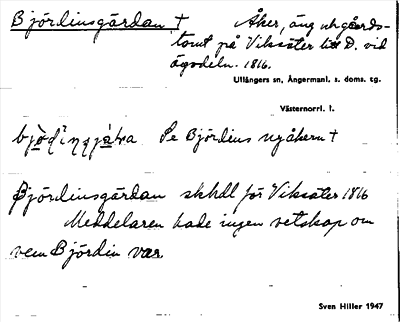 Björdinsgärdan † Åker, äng ut gårds-
tomt på Viksäter litt D. vid
ägodeln. 1816.
Ullångers sn, Ångermanl. s. doms. tg.
Västernorrl. l.
Se Björdins nyåkern †
Björdinsgärdan skhdl för Viksäter 1816
Meddelaren hade ingen vetskap om
vem Björdin var.
Sven Hiller 1947